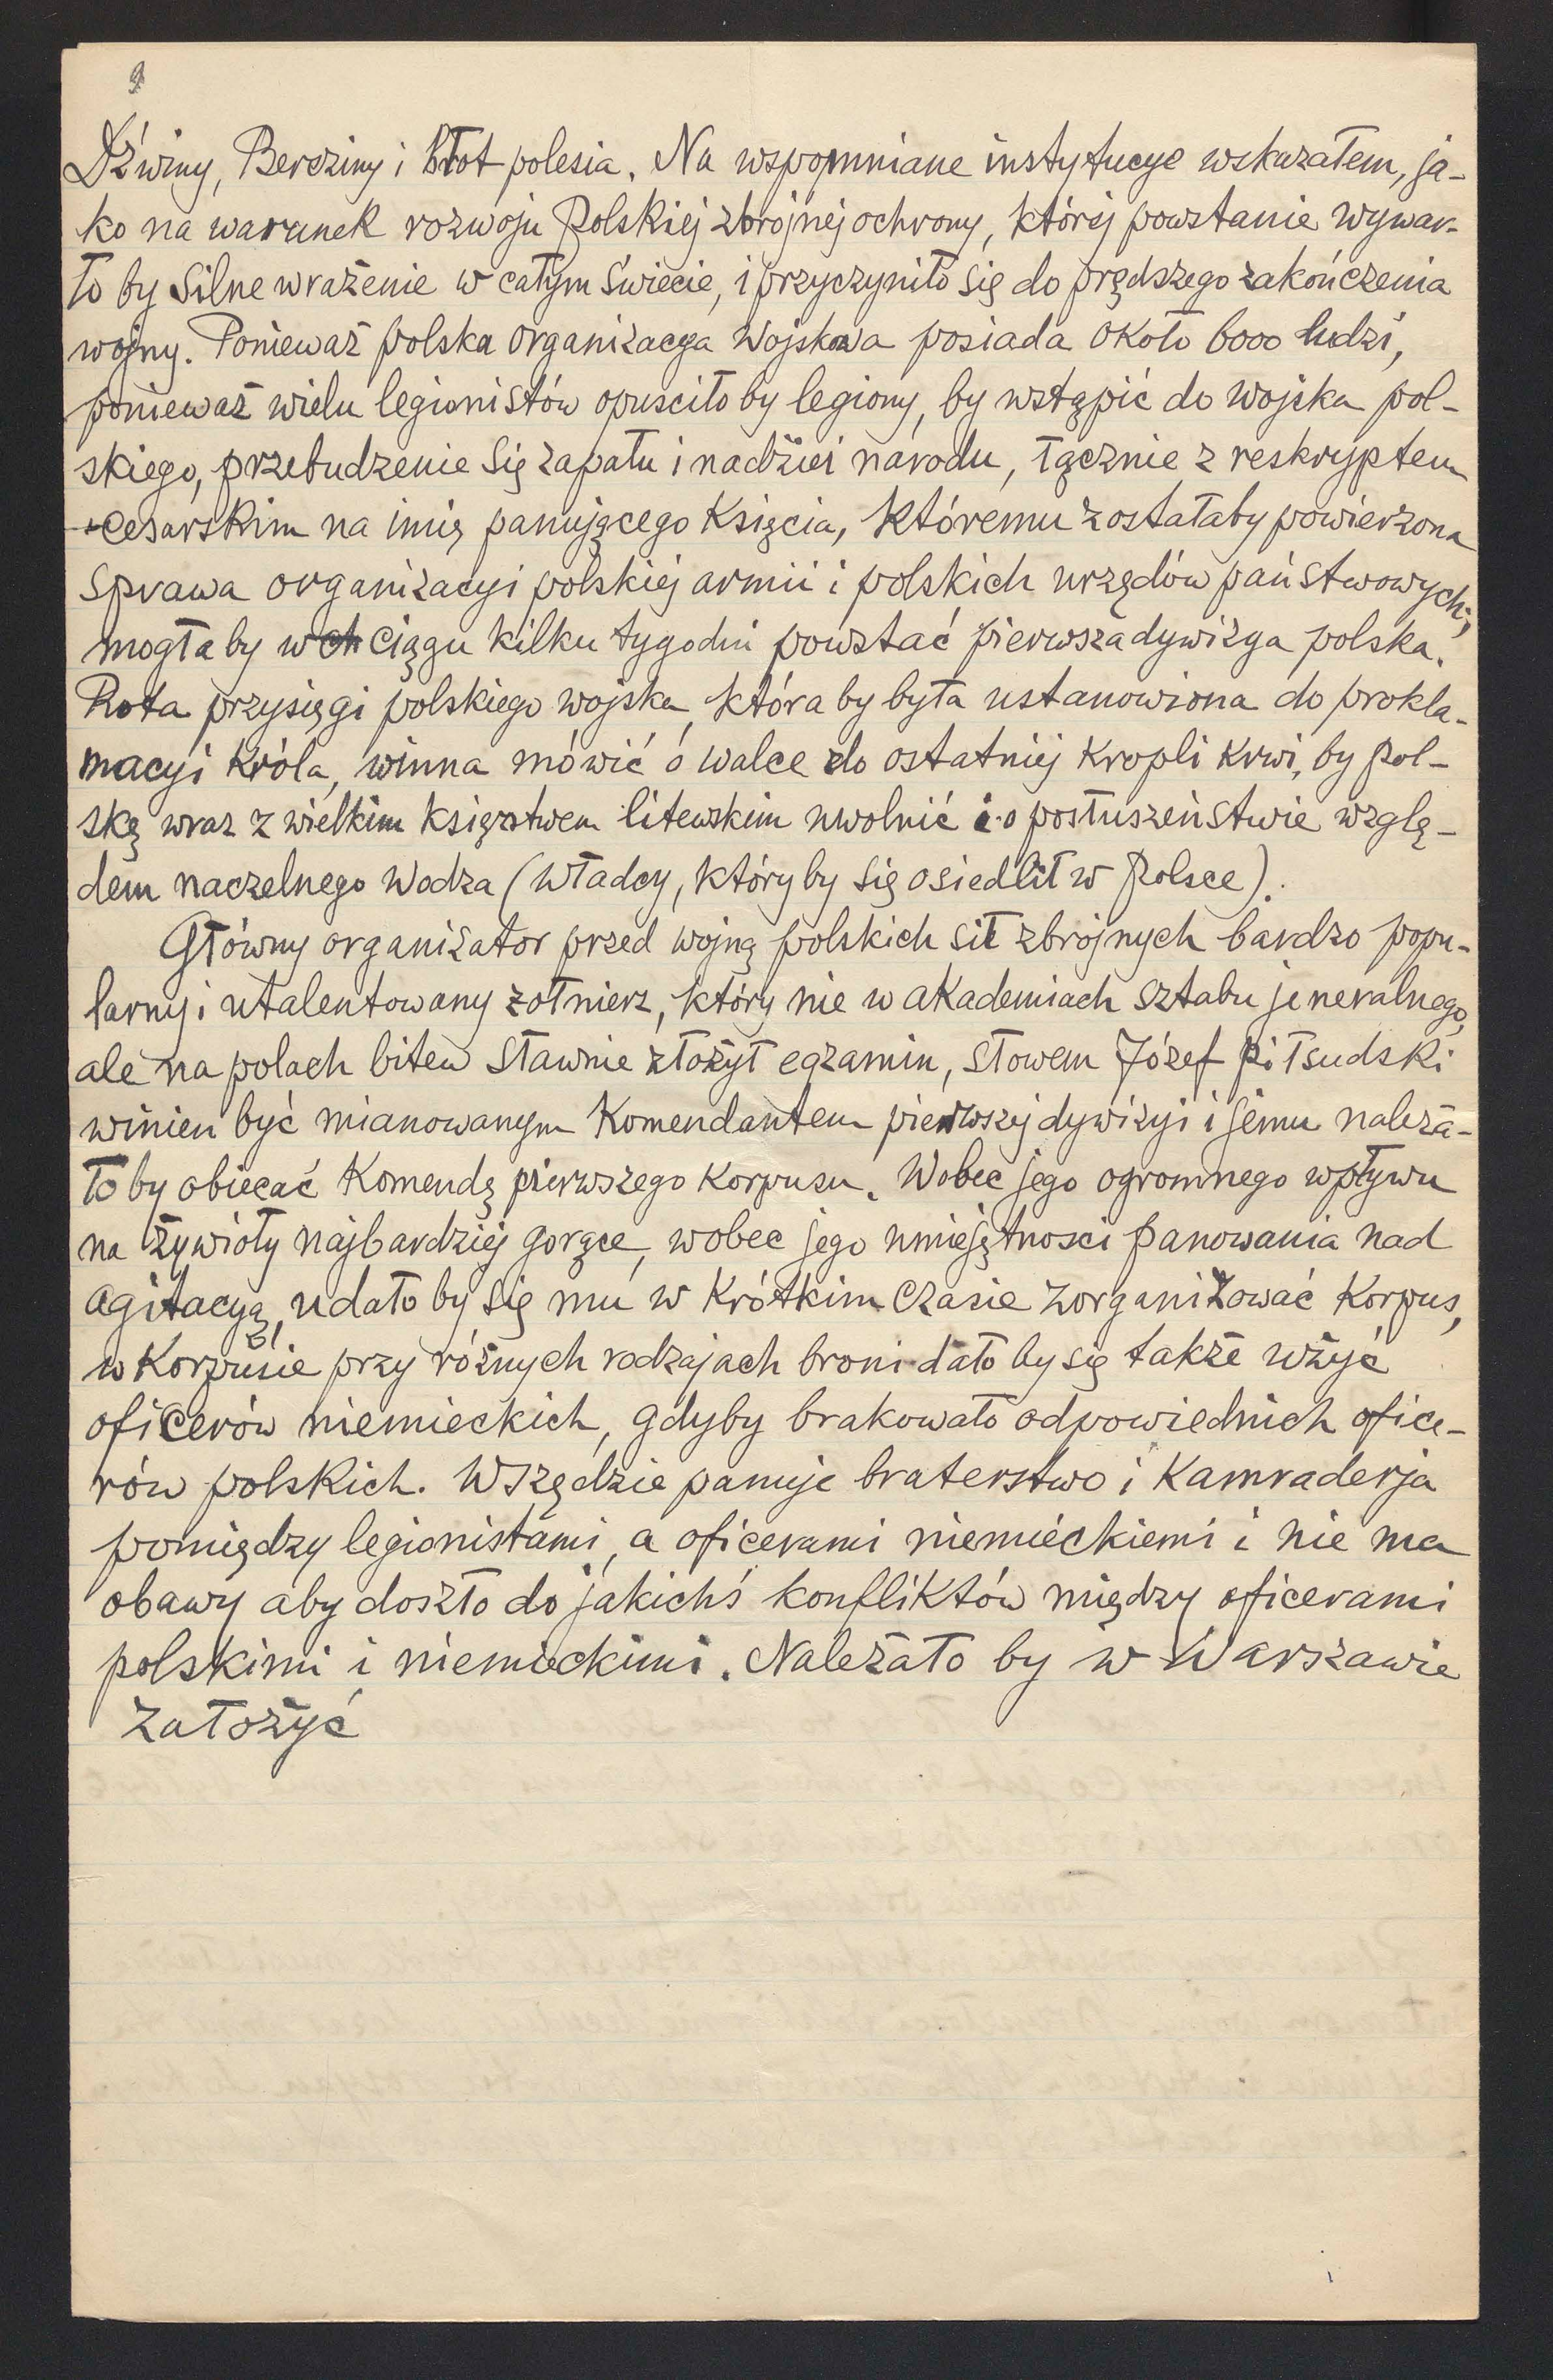 9
Dźwiny, Bereziny i błot polesia. Na wspomniane instytucye wskazałem, ja-
ko na warunek rozwoju Polskiej zbrojnej ochrony, której powstanie wywar-
ło by silne wrażenie w całym świecie, i przyczyniło się do prędszego zakończenia
wojny. Ponieważ polska organizacya wojskowa posiada około 6000 ludzi,
ponieważ wielu legionistów opuściło by legiony, by wstąpić do wojska pol-
skiego, przebudzenie się zapału i nadziei narodu, łącznie z reskryptem
cesarskim na imię panującego Księcia, któremu zostałaby powierzona
sprawa organizacyi polskiej armii i polskich urzędów państwowych,
mogła by w ciągu kilku tygodni powstać pierwsza dywizya polska.
Rota przysięgi polskiego wojska, która by była ustanowiona do prokla-
macyi Króla, winna mówić o walce do ostatniej Kropli Krwi, by Pol-
skę wraz z wielkim księstwem litewskim uwolnić i o posłuszeństwie wzglę-
dem naczelnego Wodza (Władcy, który by się osiedlił w Polsce).
Główny organizator przed wojną polskich sił zbrojnych bardzo popu-
larny i utalentowany żołnierz, który nie w akademiach sztabu jeneralnego,
ale na polach bitew sławnie złożył egzamin, słowem Józef Piłsudski
winien być mianowanym Komendantem pierwszej dywizyi i jemu należa-
ło by obiecać Komendę pierwszego Korpusu. Wobec jego ogromnego wpływu
na żywioły najbardziej gorące, wobec jego umiejętnosci panowania nad
agitacyą, udało by się mu w Krótkim czasie zorganizować Korpus,
w Korpusie przy różnych rodzajach broni dało by się także użyć
oficerów niemieckich, gdyby brakowało odpowiednich ofice-
rów polskich. Wszędzie panuje braterstwo i Kamraderja
pomiędzy legionistami, a oficerami niemieckiemi i nie ma
obawy aby doszło do jakichś konfliktów między oficerami
polskimi i niemieckimi. Należało by w Warszawie
założyć